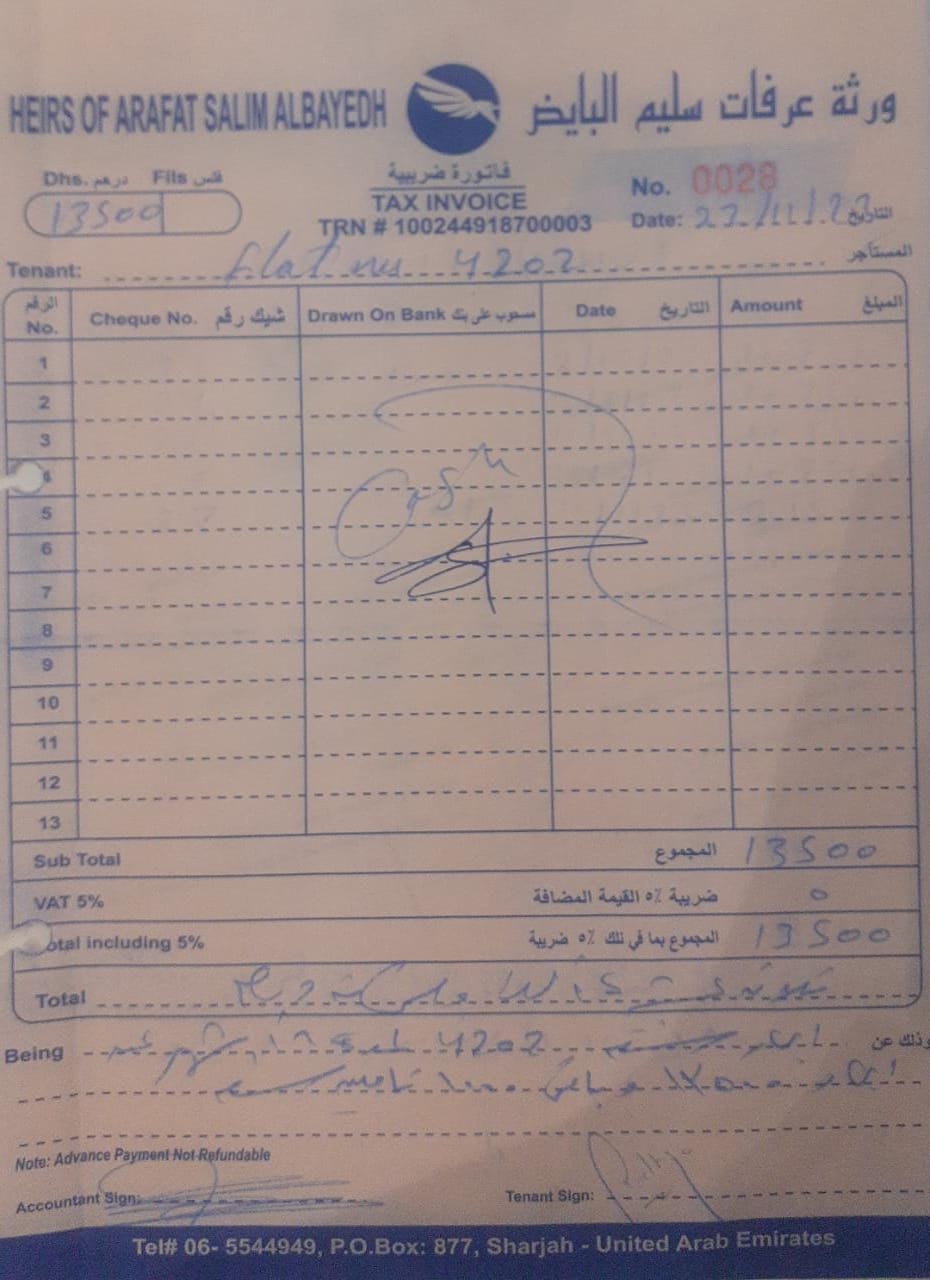 HEIRS OF ARAFAT SALIM ALBAYEDH ورثة عرفات سليم البايض
Dhs. درهم Fils فلس
13500
فاتورة ضريبية
TAX INVOICE
TRN # 100244918700003
No. 0028
Date: التاريخ
Tenant: flat no 4202 المستأجر
الرقم No. Cheque No. شيك رقم Drawn On Bank مسحوب على بنك Date التاريخ Amount المبلغ
1
2
3
4
5
6
7
8
9
10
11
12
13
Cash
Sub Total المجموع 13500
VAT 5% ضريبة ٥٪ القيمة المضافة 0
Total including 5% المجموع بما في ذلك ٥٪ ضريبة 13500
Total
Being 4202 وذلك عن
Note: Advance Payment Not Refundable
Accountant Sign: Tenant Sign:
Tel# 06- 5544949, P.O.Box: 877, Sharjah - United Arab Emirates